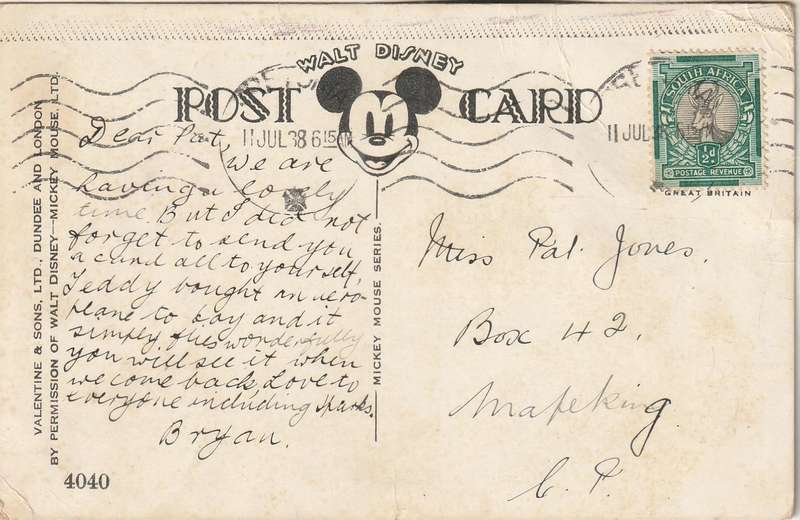 WALT DISNEY
POST CARD
11 JUL 38 6 15 AM
11 JUL 38 6 15 AM
SOUTH AFRICA
½d
POSTAGE REVENUE
GREAT BRITAIN
VALENTINE & SONS, LTD., DUNDEE AND LONDON
BY PERMISSION OF WALT DISNEY—MICKEY MOUSE, LTD.
Dear Pat,
We are
having a lovely
time. But I did not
forget to send you
a card all to yourself,
Teddy bought an aero-
plane to day and it
simply flies wonderfully
you will see it when
we come back, Love to
everyone including Sparks.
Bryan.
MICKEY MOUSE SERIES.
Miss Pat Jones.
Box 42.
Mafeking
C. P.
4040